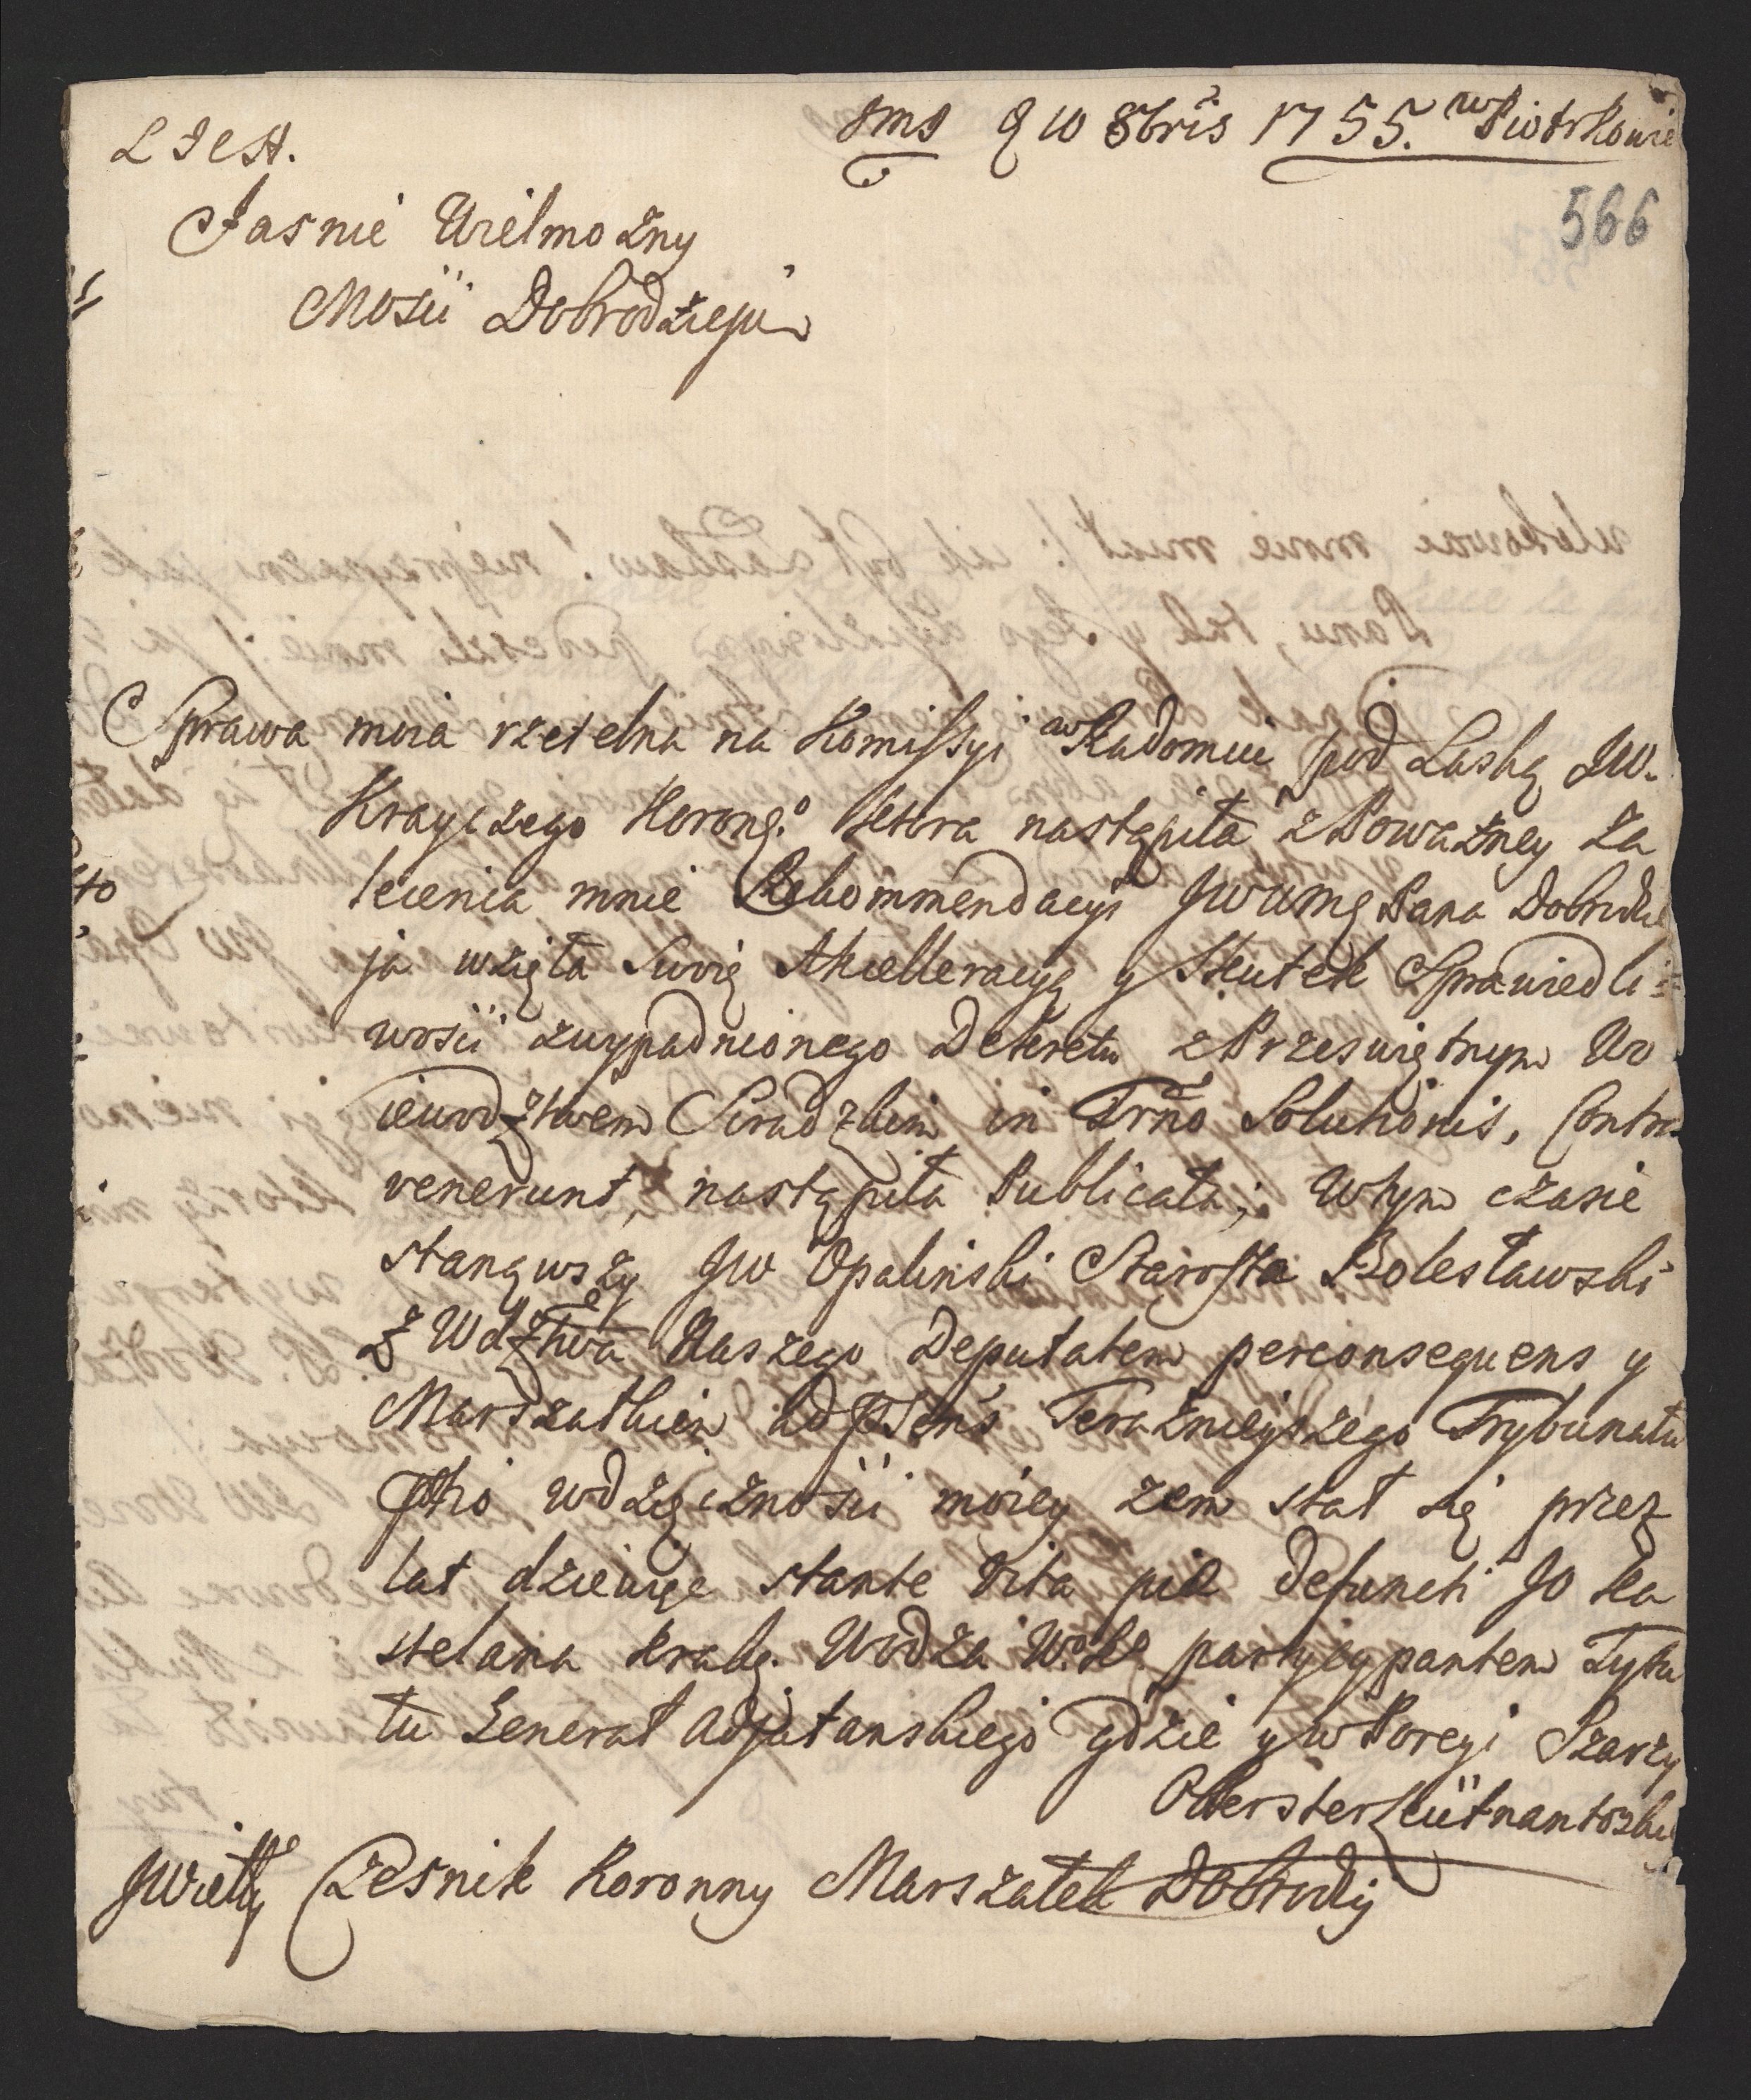 9 10 8bris 1755. w Piotrkowie
566
Jasnie Wielmożny
Mosci Dobrodzieju
Sprawa moia rzetelna na Komissyi w Radomiu pod Laską JW.
Krayczego Korong.o ktora nastąpiła z Powazney za
lecenia mnie Rekommendacyi JWWMg Pana Dobrodzie
ja wzięła Swoię Akcelleracyą y Skutek Sprawiedli=
wosci zwypadnionego Dekretu z Przeswiętnym Wo
iewodztwem Siradzkim in Trno Solutionis, Contra
venerunt, nastąpiła Publicata; Wtym czasie
stanąwszy JW Opalinski Starosta Bolesławski
z Wdztwa Naszego Deputatem perconsequens y
Marszałkiem ad psens Teraznieyszego Trybunału
wdzięcznosci moiey zem stał się przez
lat dziewięc stante vita pie defuncti JO Ka
stelana Krakg. Wodza W. K. partycypantem Tytu
łu Generał Adjutanskiego gdzie y w Poręyi Szarzy
Obersterleütnantoski
JWielky Czesnik Koronny Marszałek Dobrodzy